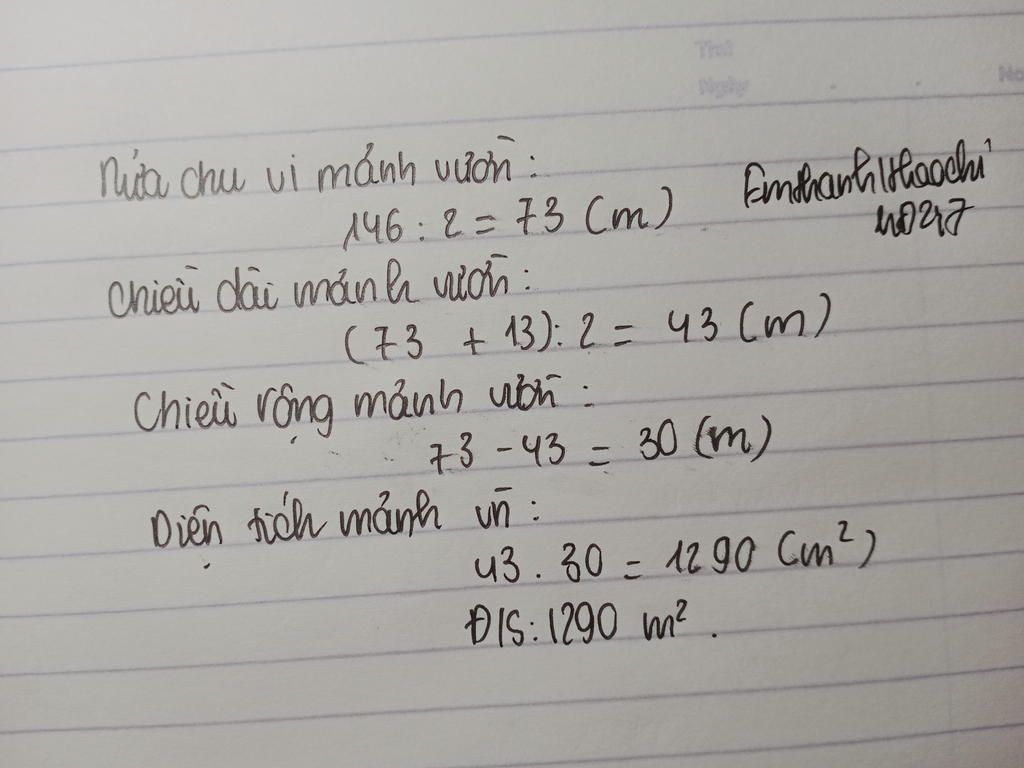 Thứ
Ngày
No
Nửa chu vi mảnh vườn:
146 : 2 = 73 (m)
Emthanhthaochi
40217
Chiều dài mảnh vườn:
(73 + 13) : 2 = 43 (m)
Chiều rộng mảnh vườn:
73 - 43 = 30 (m)
Diện tích mảnh vn:
43 . 30 = 1290 (m²)
Đ/S: 1290 m².